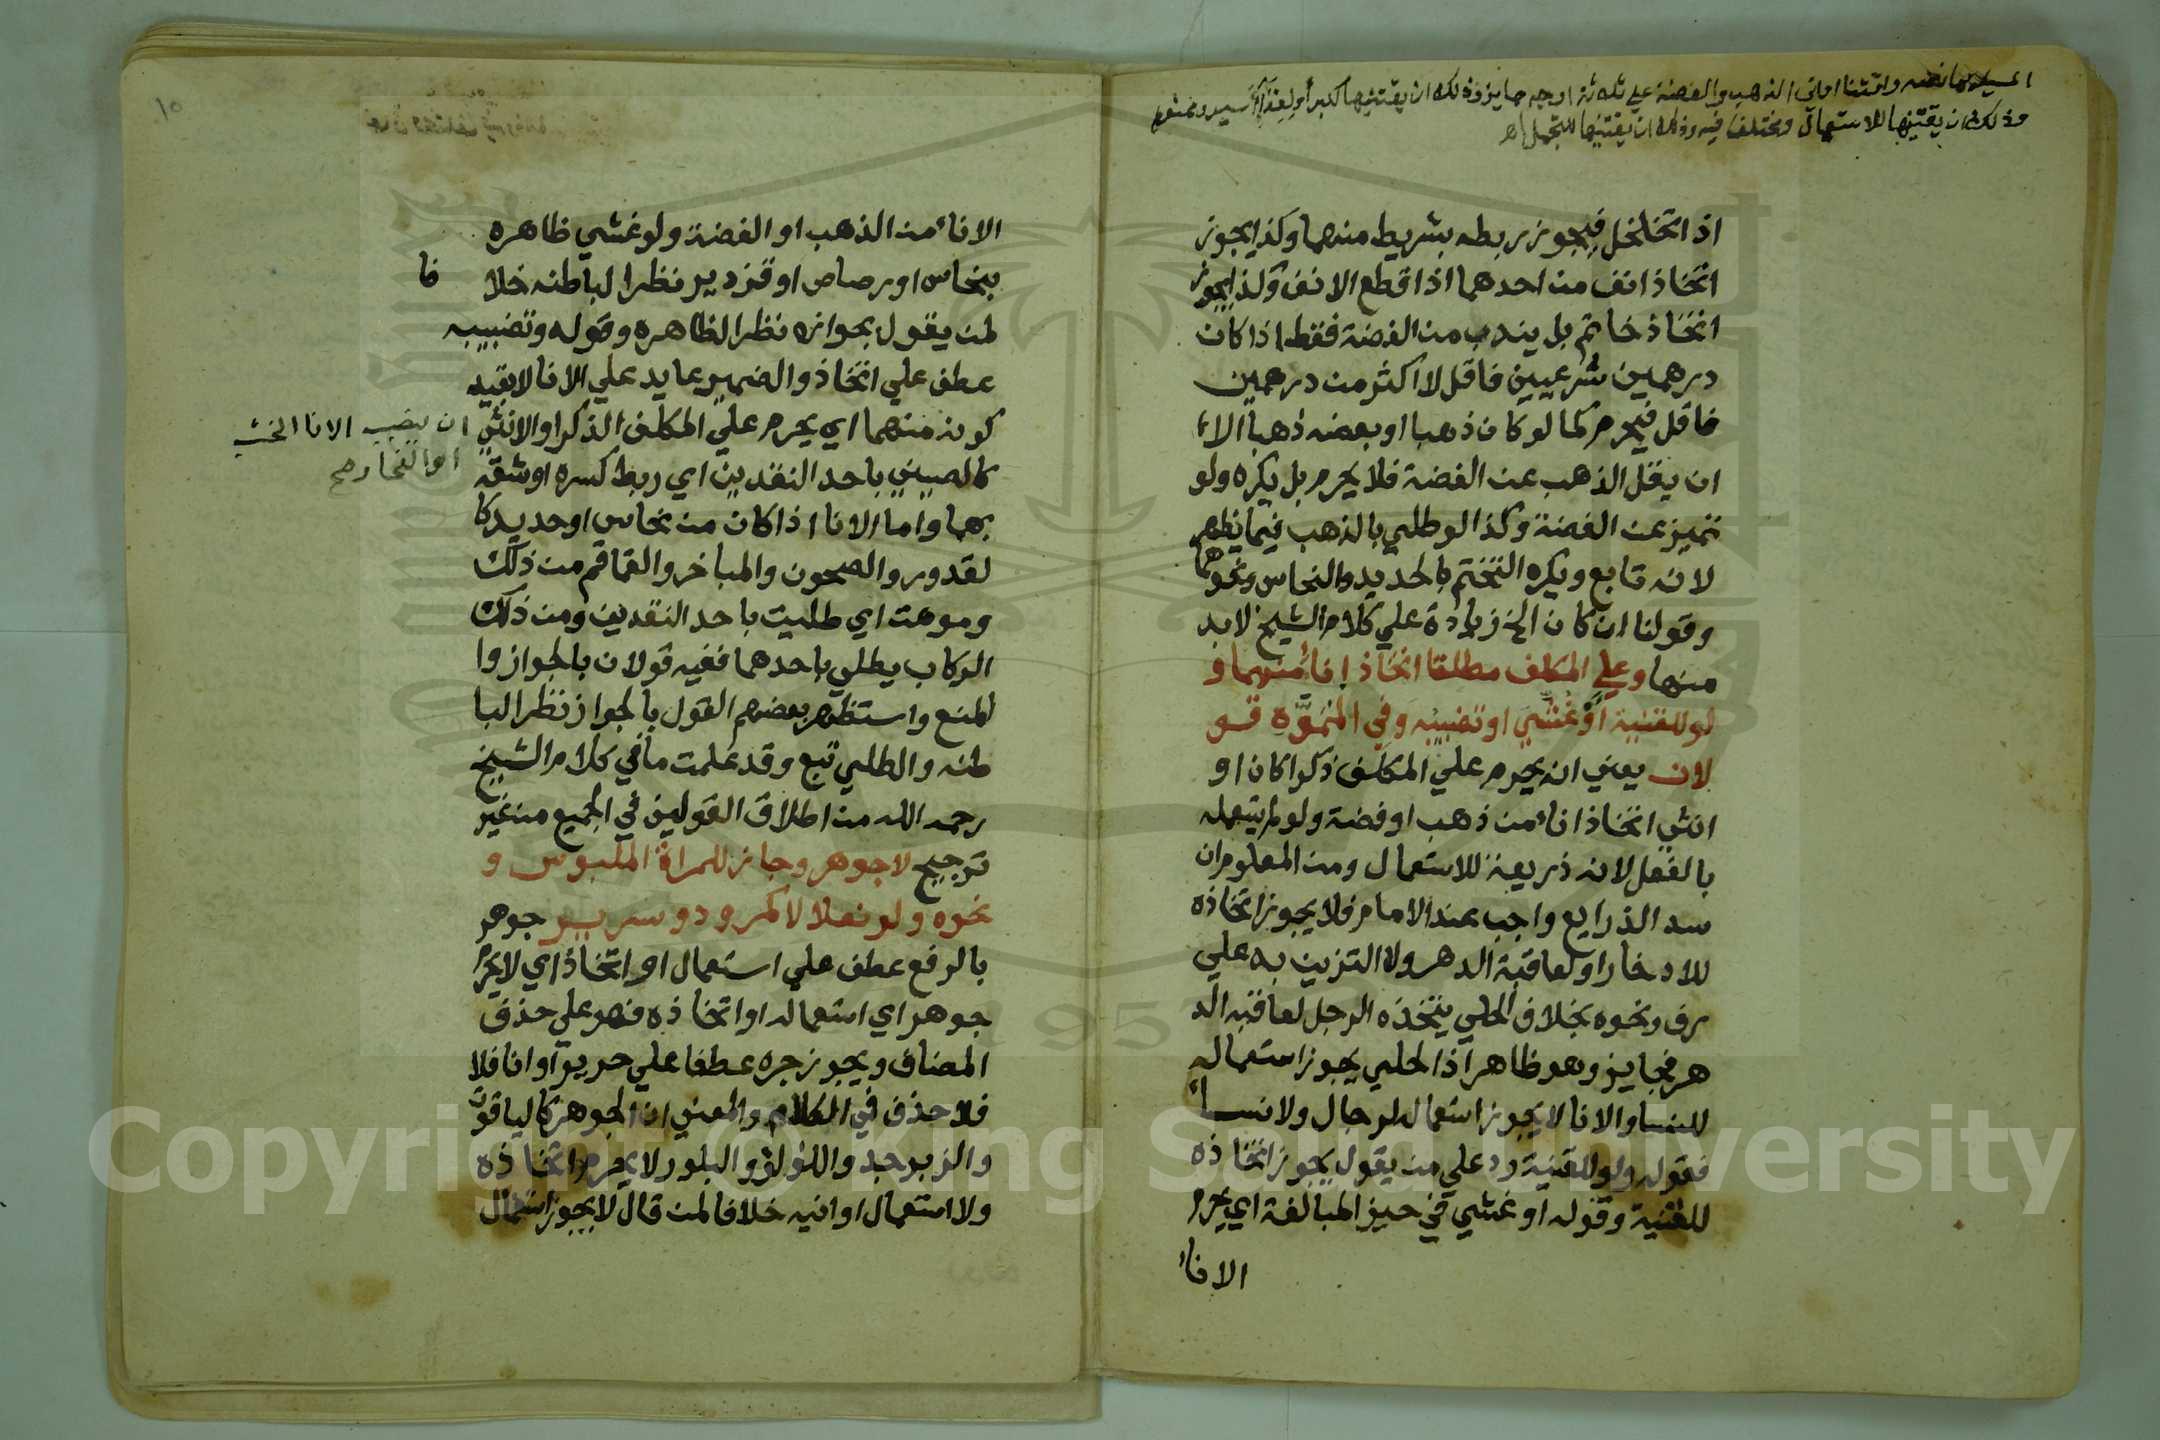 وذلك ان يقتنيها للاستعمال ومختلف فيه وذلك ان يقتنيها للتجمل اهـ
اذا تخلخل فيجوز ربطه بشريط منهما وكذا يجوز
اتخاذ انف من احدهما اذا قطع الانف وكذا يجوز
اتخاذ خاتم بل يندب من الفضة فقط اذا كان
درهمين شرعيين فاقل لا اكثر من درهمين
فاقل فيحرم كما لو كان ذهبا او بعضه ذهبا الا
ان يقل الذهب عن الفضة فلا يحرم بل يكره ولو
تميز عن الفضة وكذا لو طلي بالذهب فيما يظهر
لانه تابع ويكره التختم بالحديد والنحاس ونحوهما
وقولنا ان كان الخ زيادة علي كلام الشيخ لابد
منها وعلي المكلف مطلقا اتخاذ إناء منهما و
لو للقنية أوْ غُشّي او تضبيبه وفي المموَّه قو
لان يعني انه يحرم علي المكلف ذكرا كان او
انثي اتخاذ اناء من ذهب او فضة ولو لم يستعمله
بالفعل لانه ذريعة للاستعمال ومن المعلوم ان
سد الذرايع واجب عند الامام فلا يجوز اتخاذه
للادخار او لعاقبة الدهر ولا التزين به علي
رف ونحوه بخلاف الحلي يتخذه الرجل لعاقبة الد
هر فجايز وهو ظاهر اذ الحلي يجوز استعماله
للنسا والانا لا يجوز استعماله لرجال ولا نساء
فقوله ولو للقنية رد علي من يقول يجوز اتخاذه
للقنية وقوله او غشي في حيز المبالغة اي يحرم
الاناء
١٥
الاناء من الذهب او الفضة ولو غشي ظاهره
بنحاس او رصاص او قزدير نظرا لباطنه خلا فا
لمن يقول بجوازه نظرا لظاهره وقوله وتضبيبه
عطف علي اتخاذ والضمير عايد علي الانا لا بقيد
كونه منهما اي يحرم علي المكلف الذكر او الانثي
ان يضبب الانا الخشب
او الفخار صح
كالصيني باحد النقدين اي ربط كسره او شقه
بهما واما الانا اذا كان من نحاس او حديد كا
لقدور والصحون والمباخر والقماقم من ذلك
وموهت اي طليت باحد النقدين ومن ذلك
الركاب يطلي باحدهما ففيه قولان بالجواز وا
لمنع واستظهر بعضهم القول بالجواز نظرا لبا
طنه والطلي تبع وقد علمت ما في كلام الشيخ
رحمه الله من اطلاق القولين في الجميع من غير
ترجيح لا جوهر وجاز للمراة الملبوس و
نحوه ولو نعلا لا كمرود وسرير جوهر
بالرفع عطف علي استعمال او اتخاذ اي لا يحرم
جوهر اي استعماله او اتخاذه فهو علي حذف
المضاف ويجوز جره عطفا علي حرير او انا فلا
فلا حذف في الكلام والمعني ان الجوهر كالياقوت
والزبرجد واللؤلؤ والبلور لا يحرم اتخاذه
ولا استعمال اوانيه خلافا لمن قال لا يجوز استعمال
Copyright © King Saud University